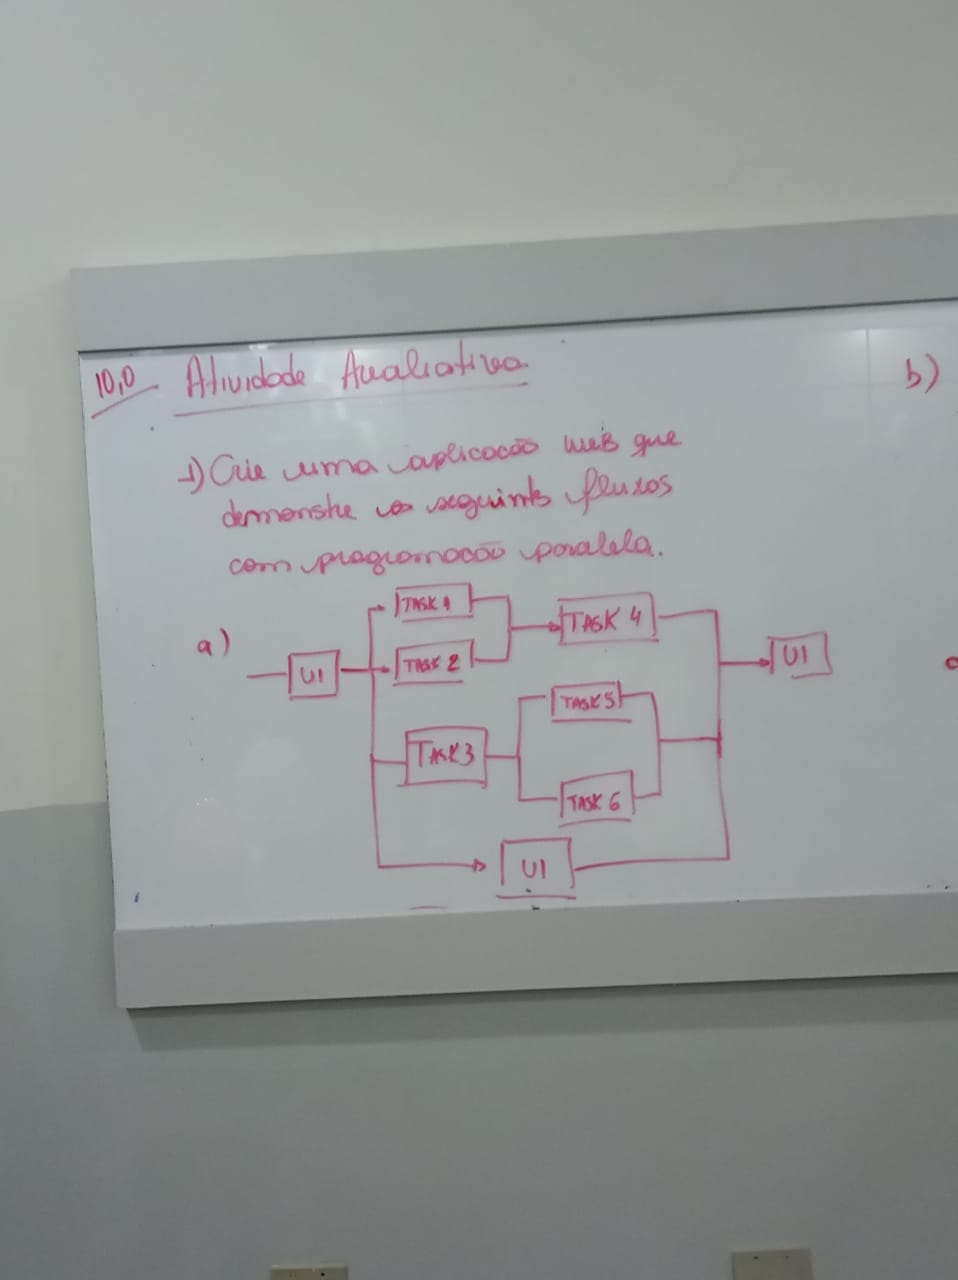 10,0 Atividade Avaliativa
b)
1) Crie uma aplicacão web que
demonstre os seguints fluxos
com programacão paralela.
a)
UI
TASK 1
TASK 2
TASK 4
UI
TASK3
TASK5
TASK 6
UI